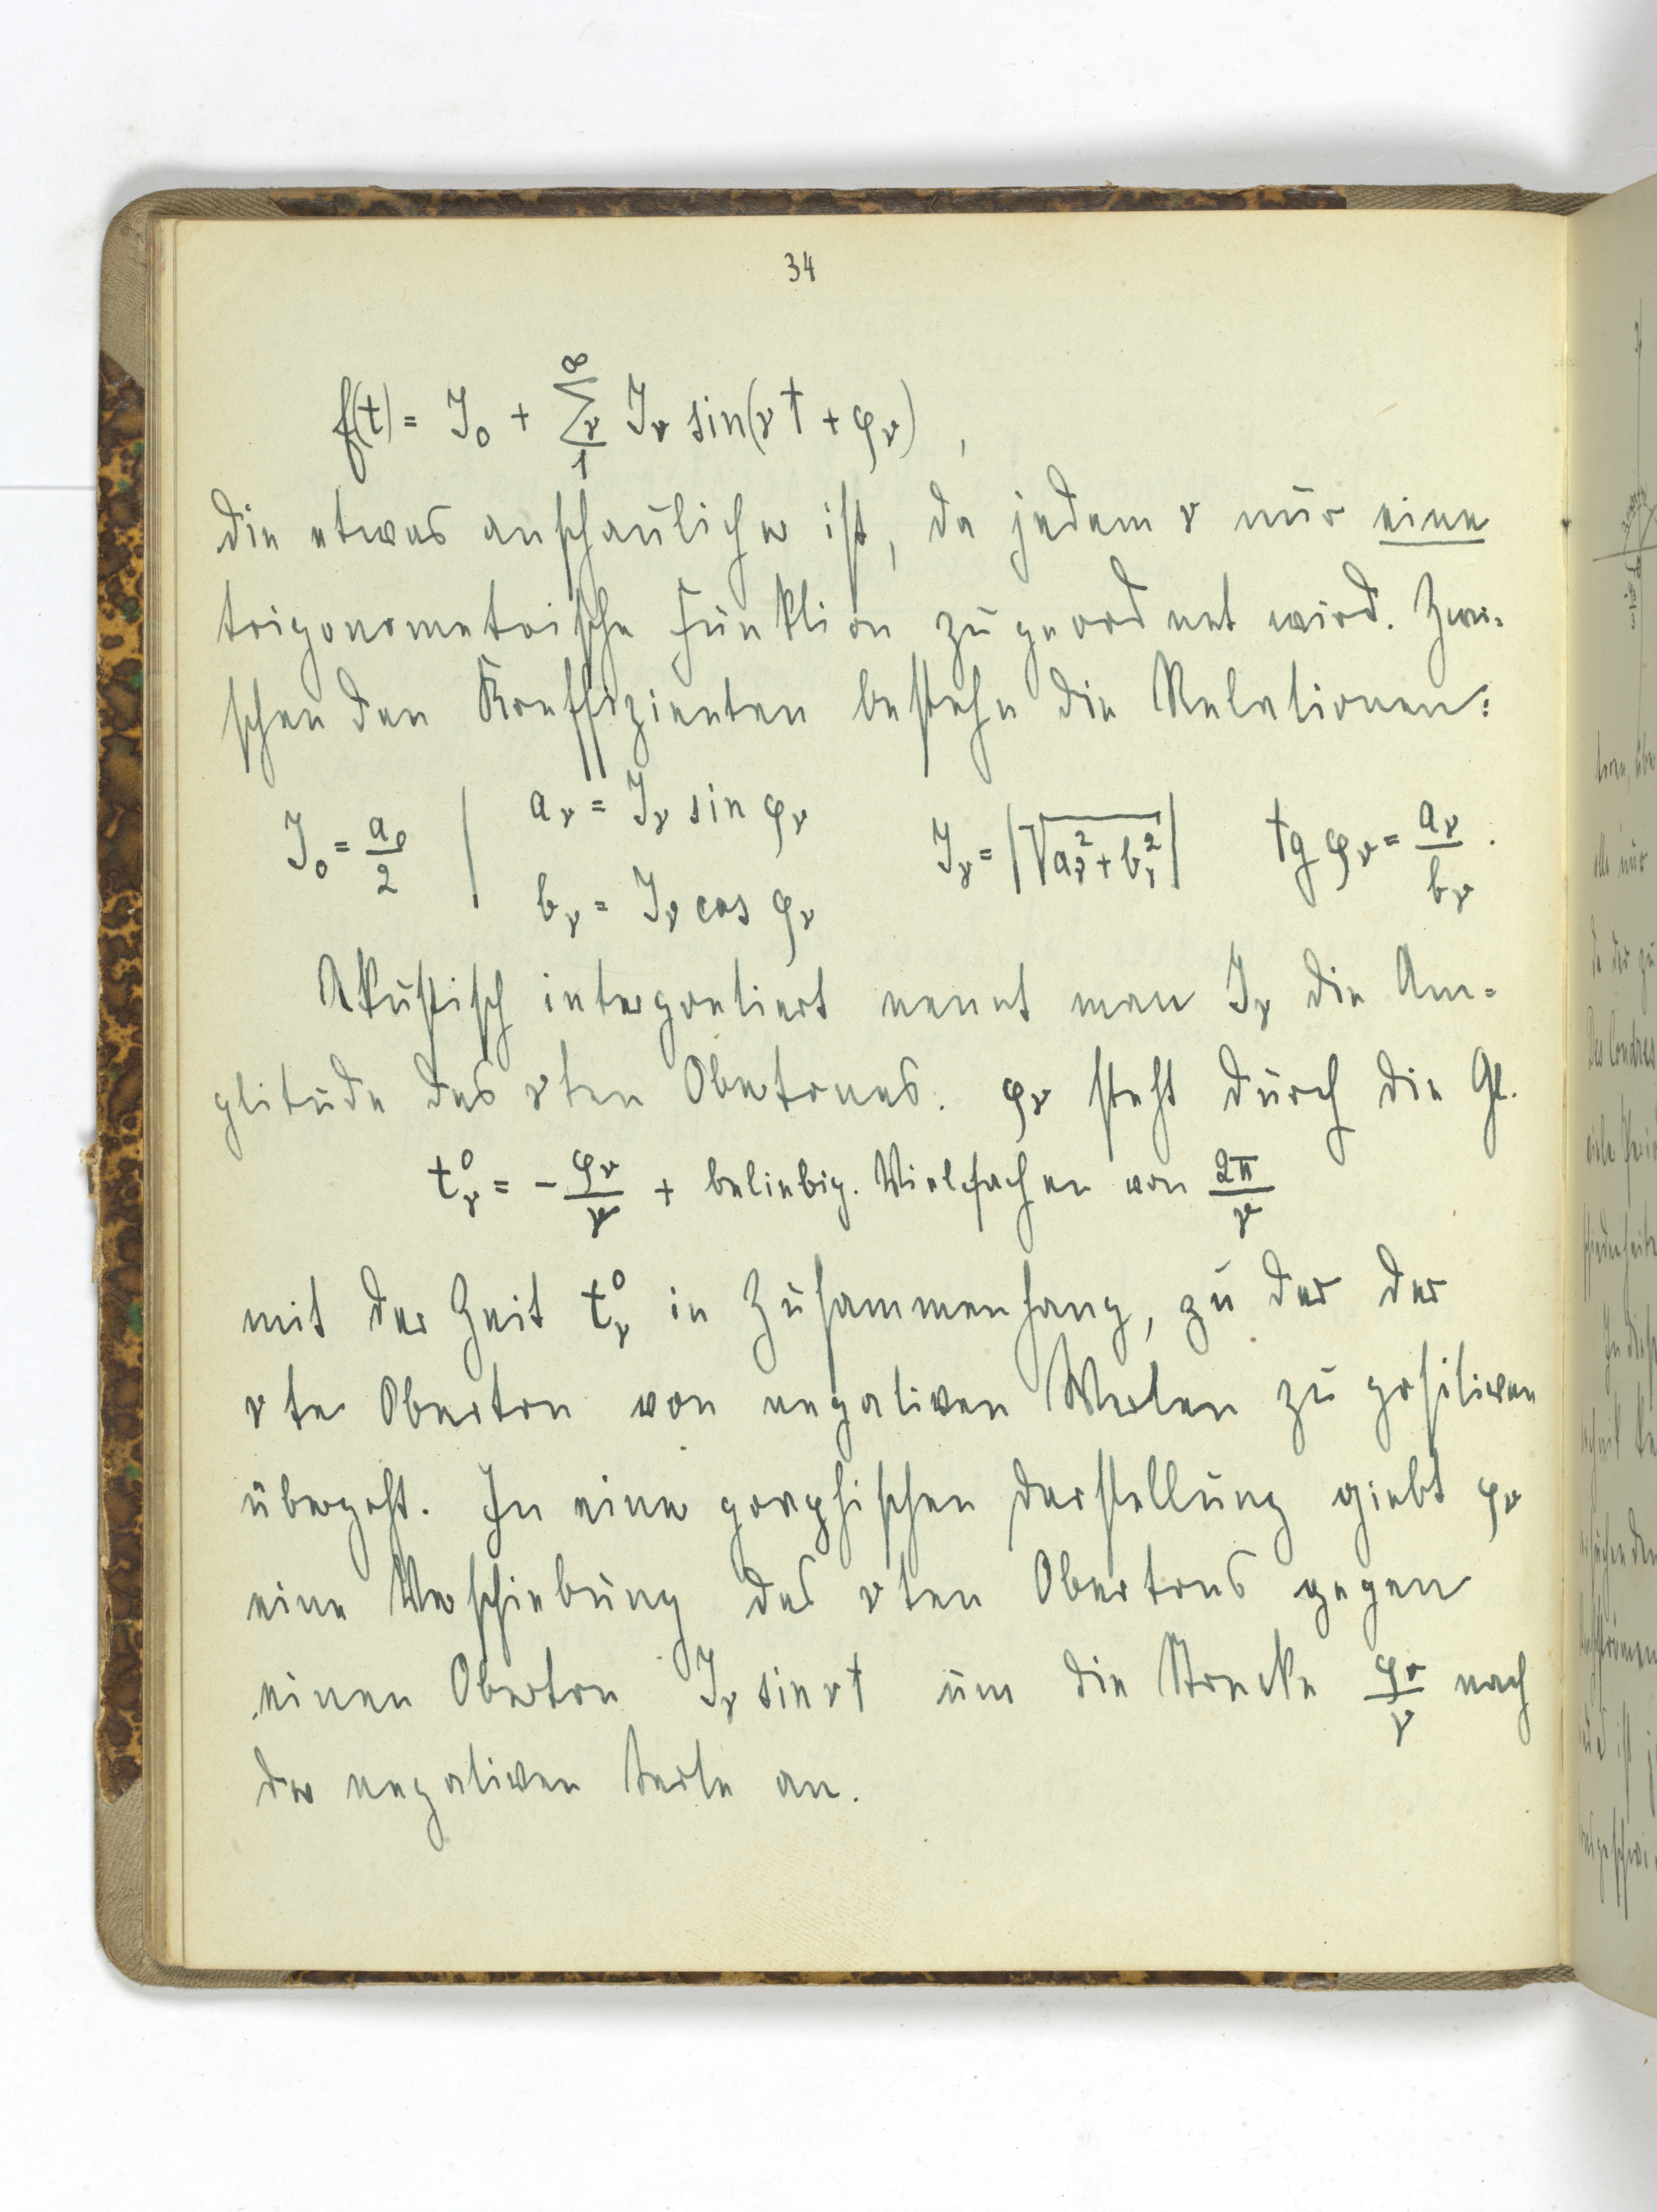 34
f(t) = J₀ + ∑ᵥ₌₁^∞ Jᵥ sin(νt + φᵥ) ,
die etwas anschaulicher ist, da jedem ν nur eine
trigonometrische Funktion zugeordnet wird. Zwi=
schen den Koeffizienten bestehn die Relationen:
J₀ = a₀/2 | aᵥ = Jᵥ sin φᵥ bᵥ = Jᵥ cos φᵥ Jᵥ = |√(aᵥ² + bᵥ²)| tg φᵥ = aᵥ/bᵥ .
Akustisch interpretiert nennt man Jᵥ die Am=
plitude des νten Obertones. φᵥ steht durch die Gl.
tᵥ⁰ = - φᵥ/ν + beliebig. Vielfachen von 2π/ν
mit der Zeit tᵥ⁰ in Zusammenhang, zu der der
νte Oberton von negativen Werten zu positiven
übergeht. In einer graphischen Darstellung giebt φᵥ
eine Verschiebung des νten Obertons gegen
einen Oberton Jᵥ sin νt um die Strecke φᵥ/ν nach
der negativen Seite an.